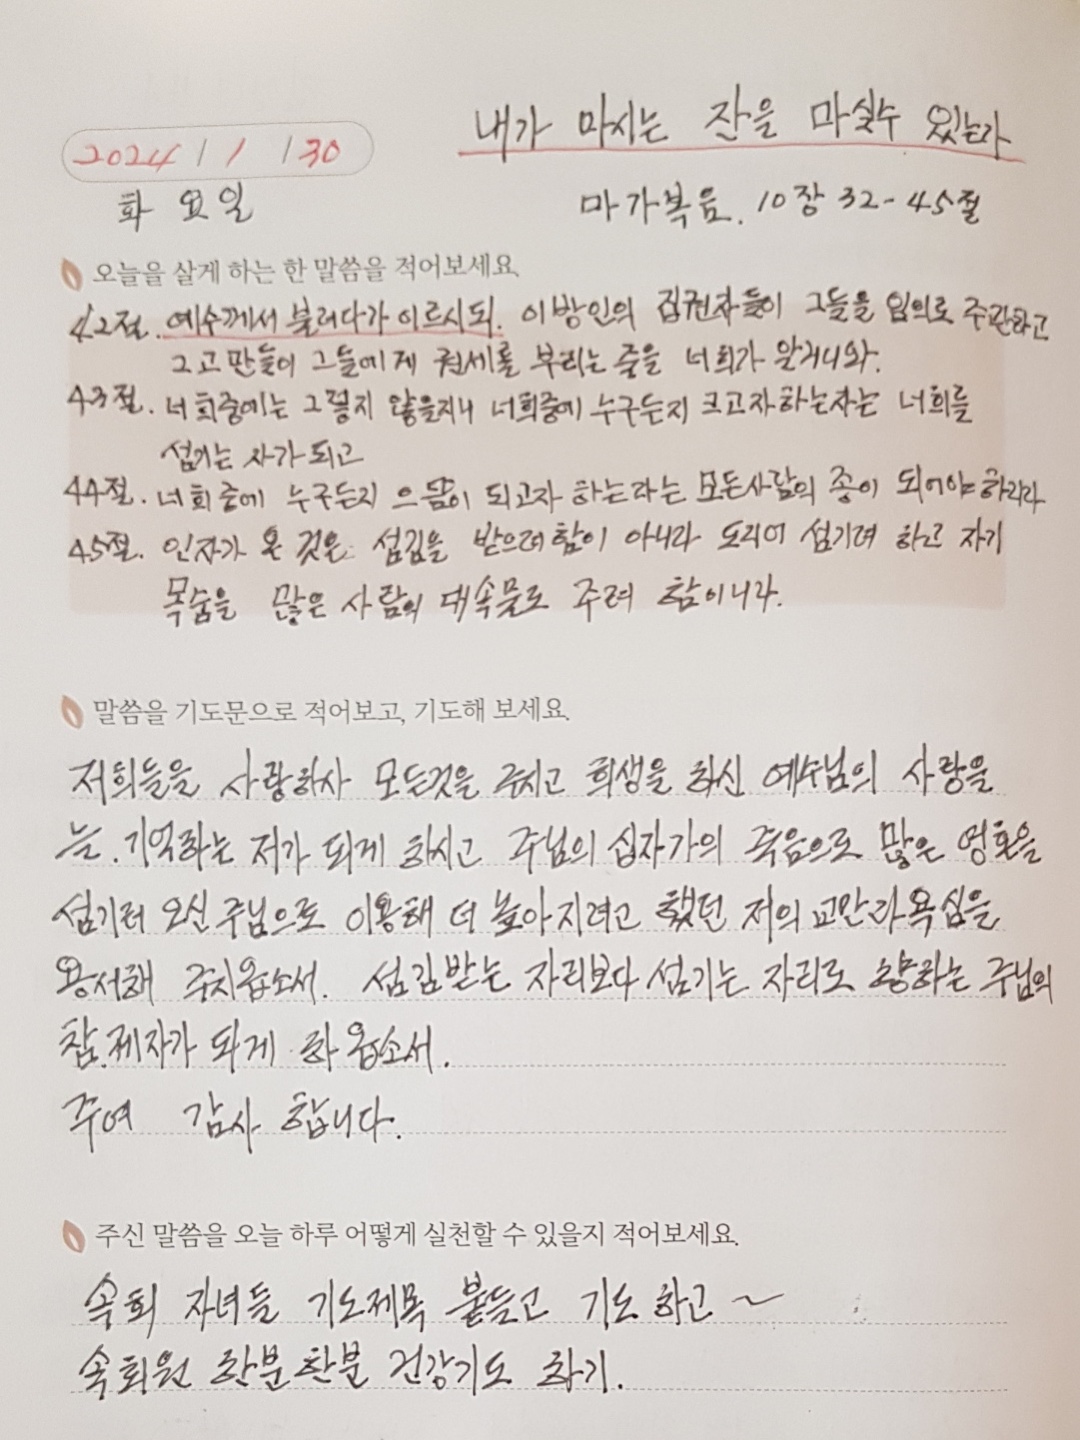 내가 마시는 잔을 마실수 있는냐
2024 / 1 / 30
화 요 일
마가복음. 10장 32-45절
오늘을 살게 하는 한 말씀을 적어보세요.
42절. 예수께서 불러다가 이르시되. 이방인의 집권자들이 그들을 임의로 주관하고
그 고관들이 그들에게 권세를 부리는 줄을 너희가 알거니와.
43절. 너희중에는 그렇지 않을지니 너희중에 누구든지 크고자하는자는 너희를
섬기는 자가 되고
44절. 너희 중에 누구든지 으뜸이 되고자 하는자는 모든사람의 종이 되어야 하리라
45절. 인자가 온 것은 섬김을 받으려함이 아니라 도리어 섬기려 하고 자기
목숨을 많은 사람의 대속물로 주려 함이니라.
말씀을 기도문으로 적어보고, 기도해 보세요.
저희들을 사랑하사 모든것을 주시고 희생을 하신 예수님의 사랑을
늘. 기억하는 저가 되게 하시고 주님의 십자가의 죽음으로 많은 영혼을
섬기러 오신 주님으로 이용해 더 높아지려고 했던 저의 교만과 욕심을
용서해 주시옵소서. 섬김받는 자리보다 섬기는 자리로 향하는 주님의
참.제자가 되게 하옵소서.
주여 감사 합니다.
주신 말씀을 오늘 하루 어떻게 실천할 수 있을지 적어보세요.
속회 자녀들 기도제목 붙들고 기도 하고 ~
속회원 한분한분 건강기도 하기.